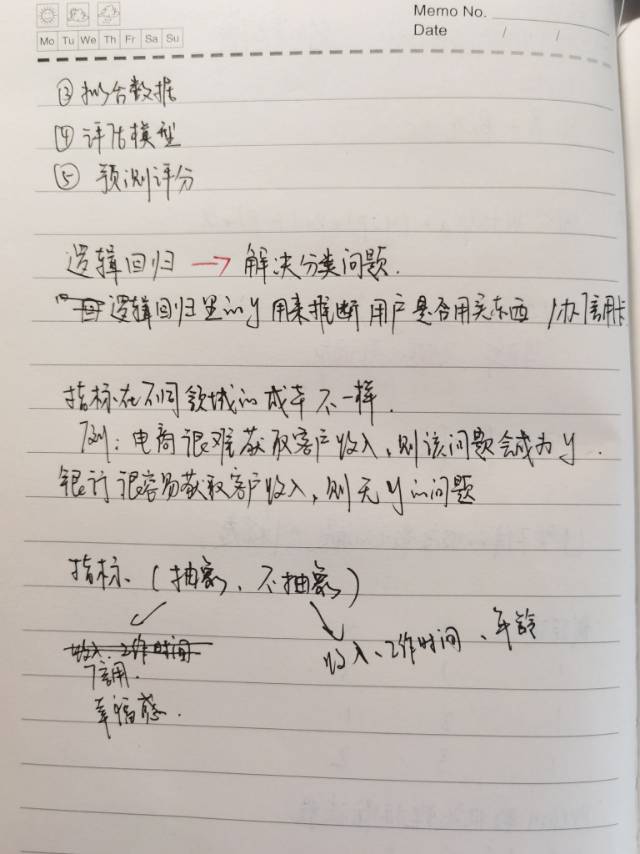 Memo No.
Date / /
Mo Tu We Th Fr Sa Su
③ 拟合数据
④ 评估模型
⑤ 预测评分
逻辑回归 → 解决分类问题.
逻辑回归里的y用来推断用户是否用买东西/办信用卡
指标在不同领域的成本不一样.
例: 电商很难获取客户收入,则该问题会成为y.
银行很容易获取客户收入,则无y的问题
指标、(抽象、不抽象)
收入、工作时间
收入、工作时间、年龄
信用.
幸福感.